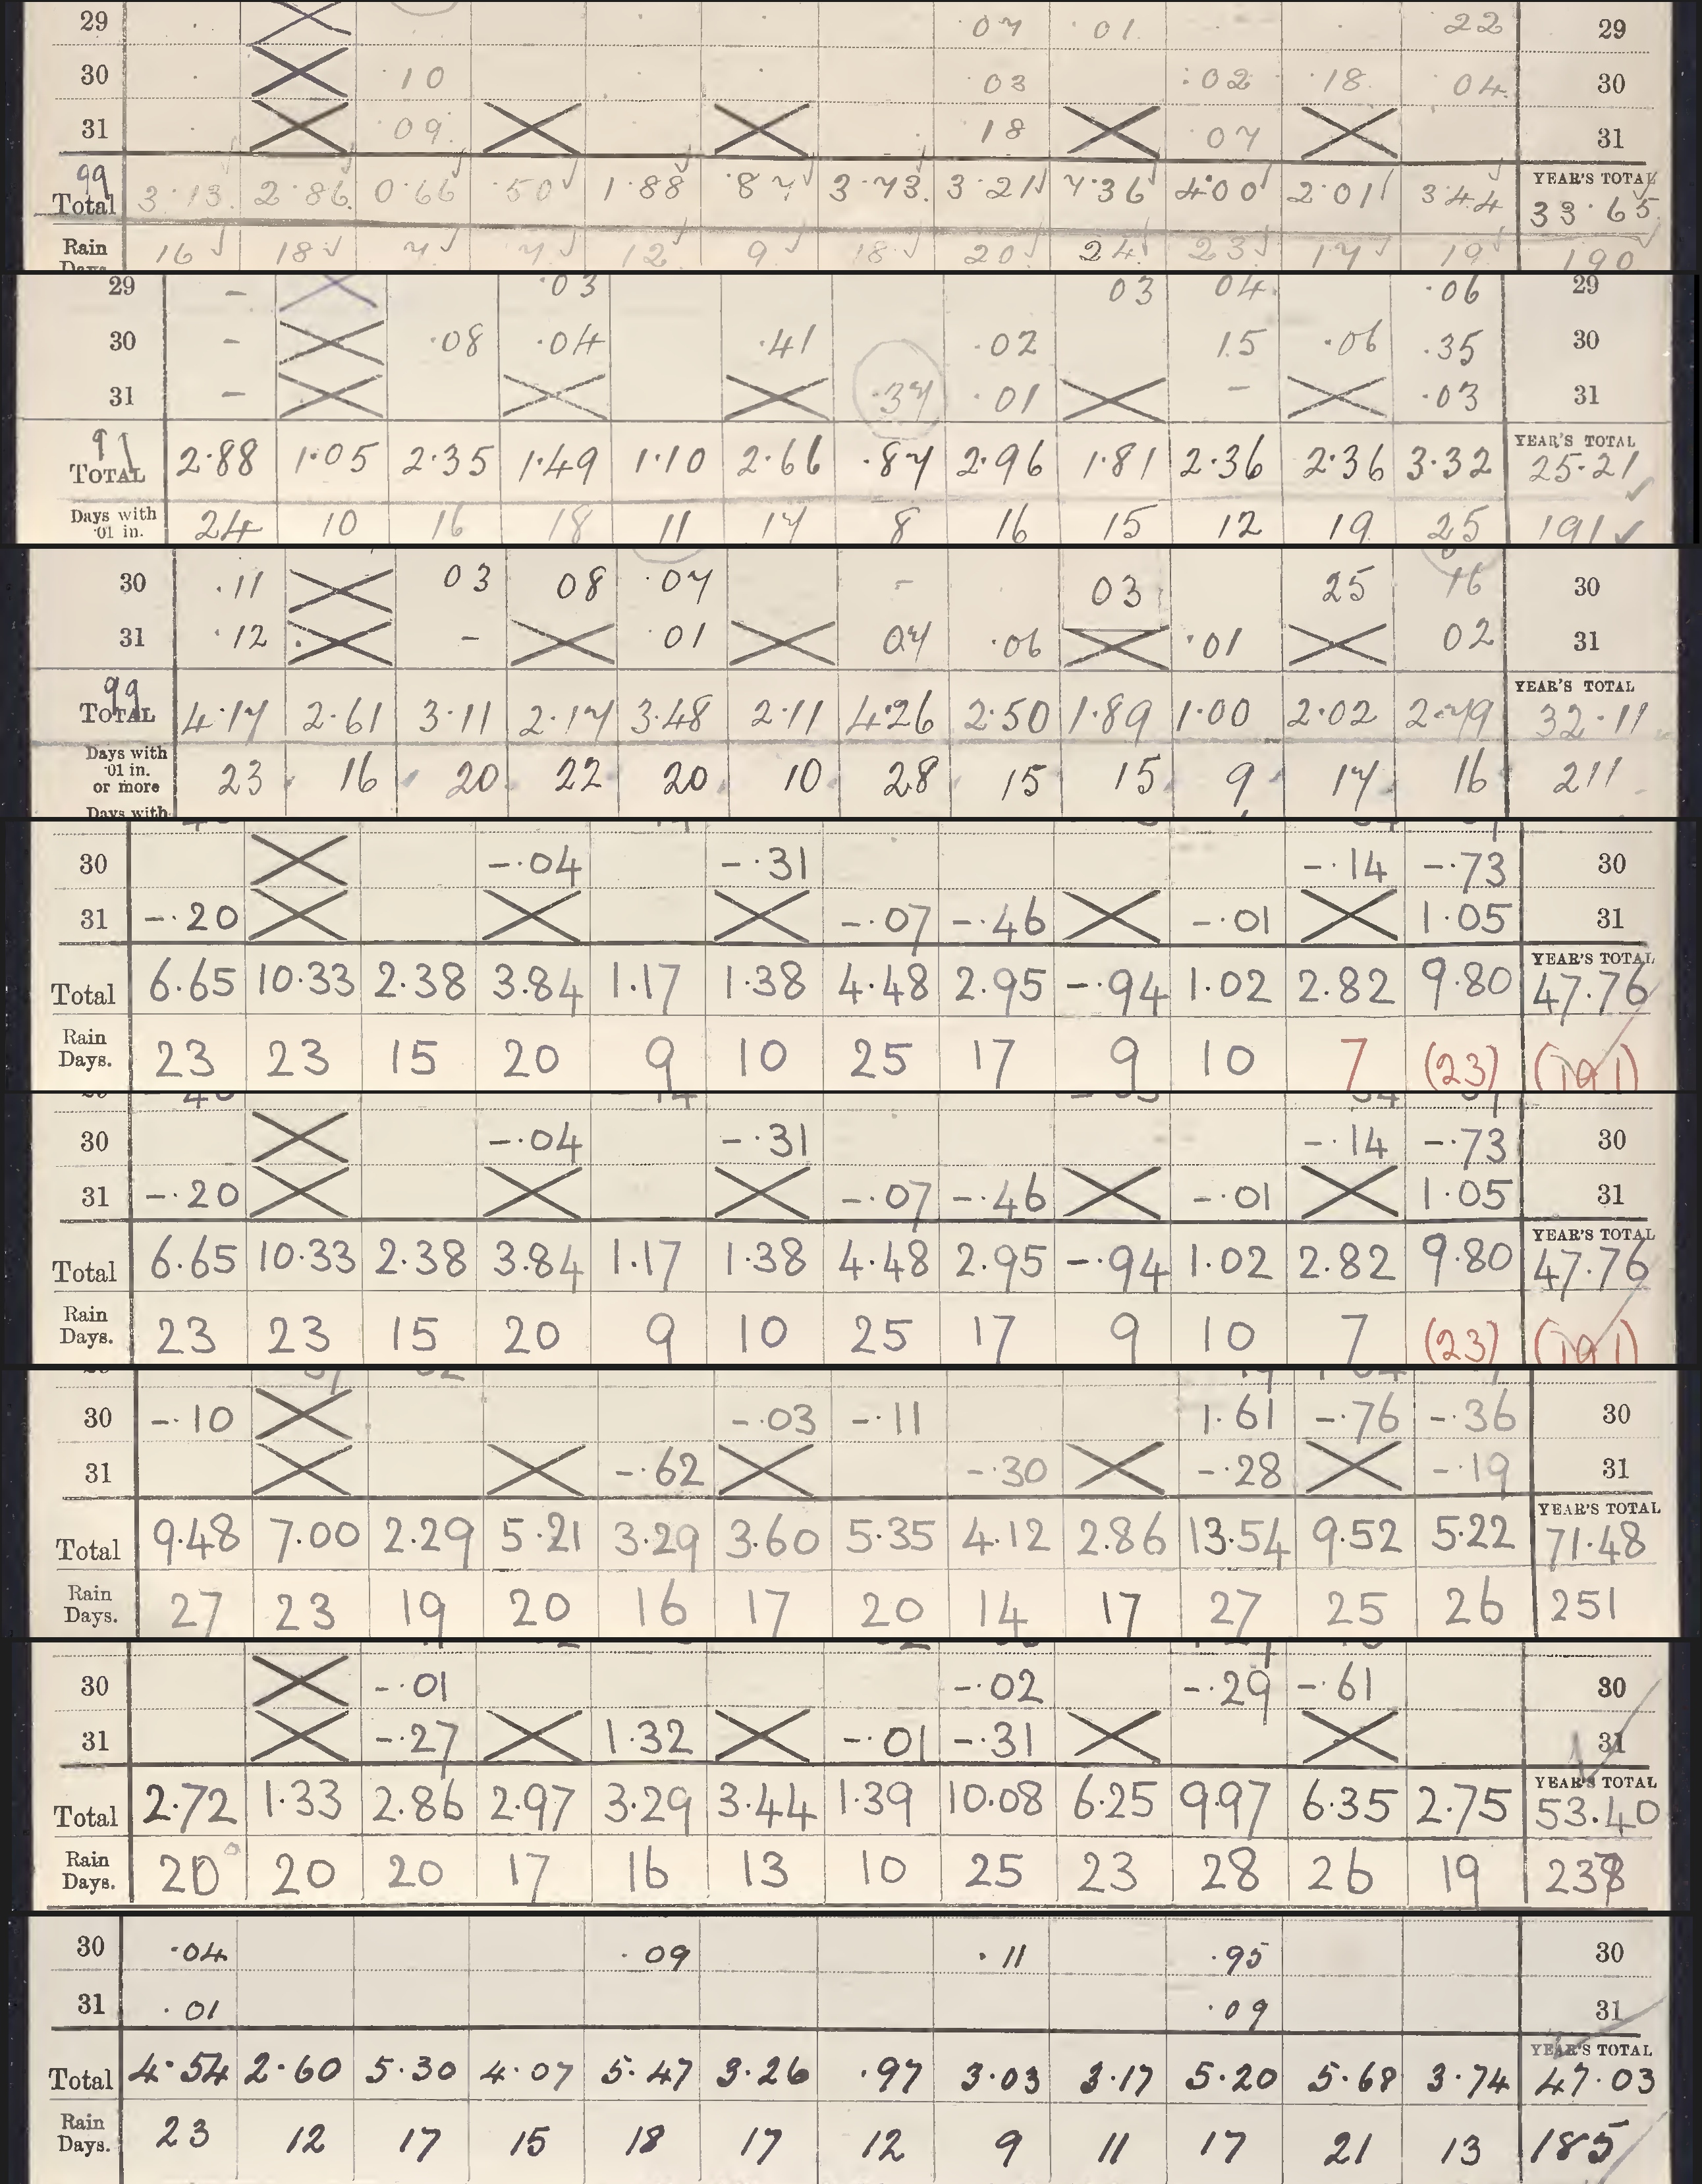 29 · · 07 · 01 · 22 29
30 · · 10 · · 03 · 02 · 18 04 30
31 · 09 · 18 07 31
99 YEAR'S TOTAL
Total 3·13 2·86 0·66 ·50 1·88 ·87 3·73 3·21 7·36 4·00 2·01 3·44 33·65
Rain 16 18 7 7 12 9 18 20 24 23 17 19 190
Days
29 – ·03 03 04 ·06 29
30 – ·08 ·04 ·41 ·02 15 ·06 ·35 30
31 – ·37 ·01 – ·03 31
YEAR'S TOTAL
TOTAL 2·88 1·05 2·35 1·49 1·10 2·66 ·87 2·96 1·81 2·36 2·36 3·32 25·21
Days with
·01 in. 24 10 16 18 11 17 8 16 15 12 19 25 191
30 ·11 03 08 ·07 – 03 25 16 30
31 ·12 – 01 07 ·06 ·01 02 31
99 YEAR'S TOTAL
TOTAL 4·17 2·61 3·11 2·17 3·48 2·11 4·26 2·50 1·89 1·00 2·02 2·79 32·11
Days with
·01 in.
or more 23 16 20 22 20 10 28 15 15 9 17 16 211
Days with
30 –·04 –·31 –·14 –·73 30
31 –·20 –·07 –·46 –·01 1·05 31
YEAR'S TOTAL
Total 6.65 10·33 2·38 3·84 1·17 1·38 4·48 2.95 –·94 1·02 2.82 9·80 47·76
Rain
Days. 23 23 15 20 9 10 25 17 9 10 7 (23) (191)
30 –·04 –·31 –·14 –·73 30
31 –·20 –·07 –·46 –·01 1·05 31
YEAR'S TOTAL
Total 6.65 10·33 2·38 3·84 1·17 1·38 4·48 2.95 –·94 1·02 2.82 9·80 47·76
Rain
Days. 23 23 15 20 9 10 25 17 9 10 7 (23) (191)
30 –·10 –·03 –·11 1·61 –·76 –·36 30
31 –·62 –·30 –·28 –·19 31
YEAR'S TOTAL
Total 9·48 7.00 2·29 5·21 3·29 3·60 5·35 4·12 2·86 13·54 9·52 5·22 71·48
Rain
Days. 27 23 19 20 16 17 20 14 17 27 25 26 251
30 –·01 –·02 –·29 –·61 30
31 –·27 1·32 –·01 –·31 31
YEAR'S TOTAL
Total 2·72 1·33 2·86 2·97 3·29 3·44 1·39 10·08 6·25 9.97 6·35 2·75 53·40
Rain
Days. 20 20 20 17 16 13 10 25 23 28 26 19
30 ·04 ·09 ·11 ·95 30
31 ·01 ·09 31
YEAR'S TOTAL
Total 4·54 2·60 5·30 4·07 5·47 3·26 ·97 3·03 3·17 5·20 5·68 3·74 47·03
Rain
Days. 23 12 17 15 18 17 12 9 11 17 21 13 185